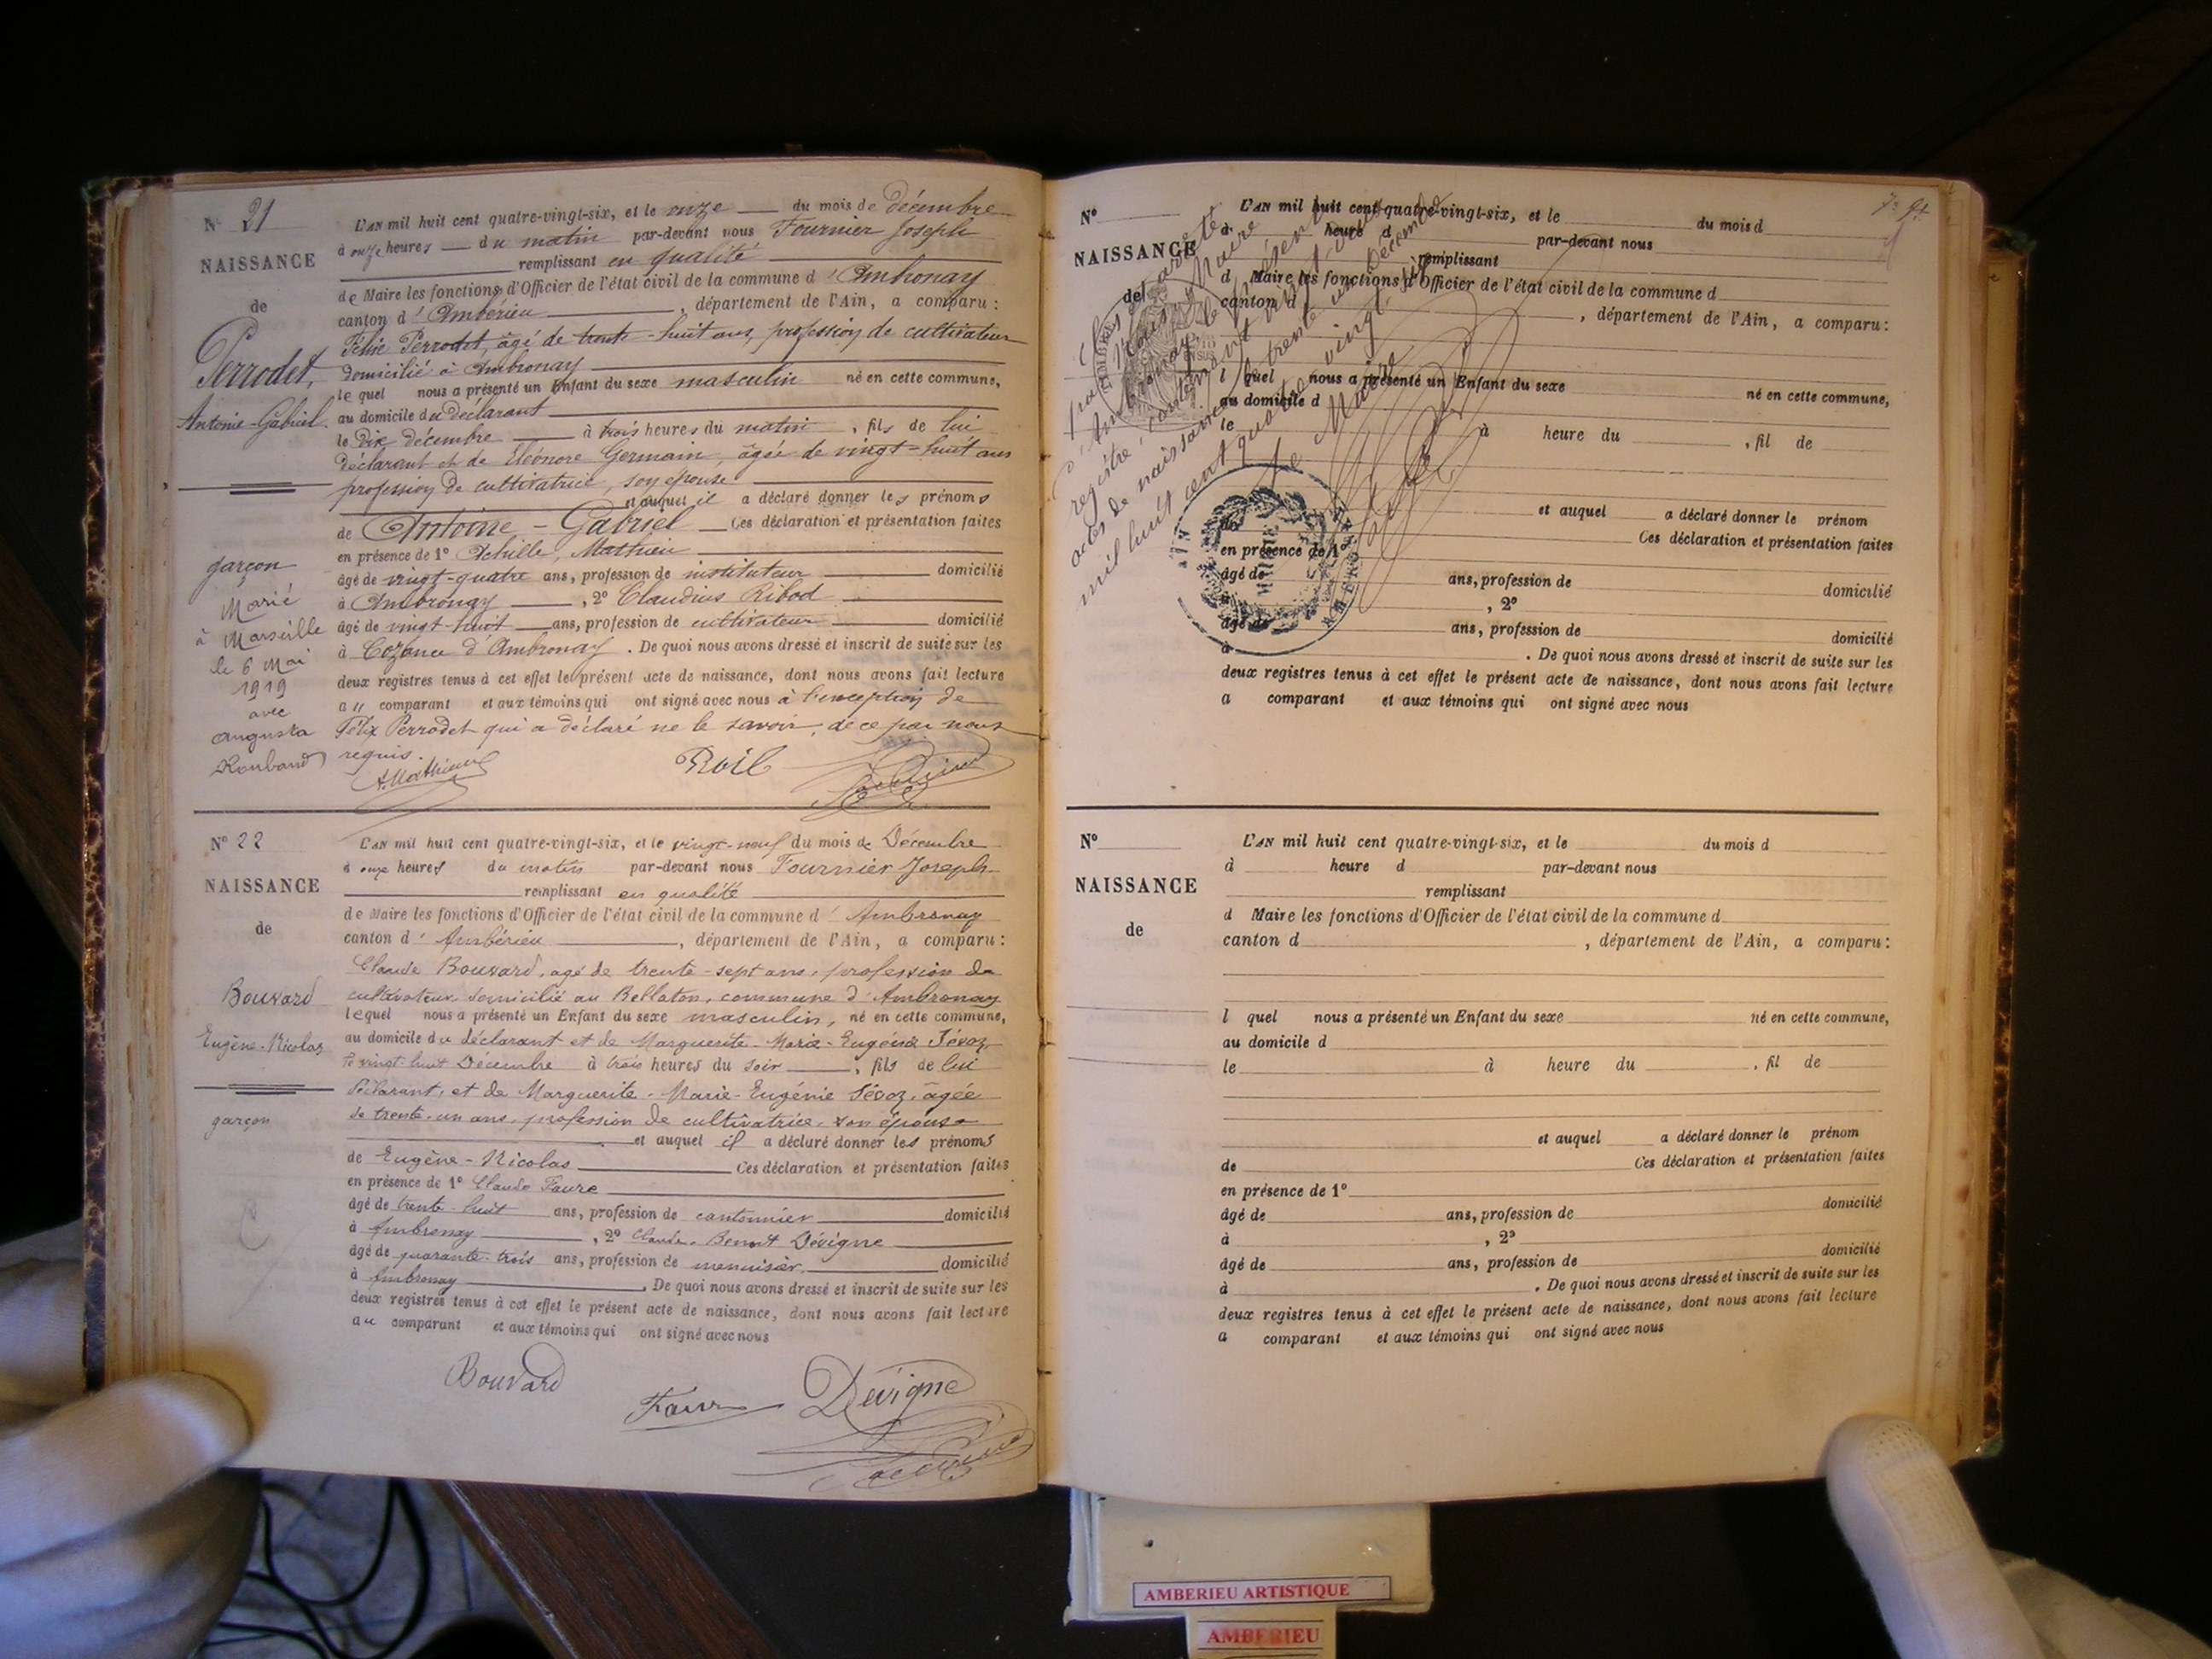 N° 21
NAISSANCE
de
Perrodet,
Antoine-Gabriel.
garçon
Marié
à Marseille
le 6 Mai
1919
avec
Augusta
Roubaud
L'AN mil huit cent quatre-vingt-six, et le onze du mois de décembre
à onze heures du matin par-devant nous Fournier Joseph
remplissant en qualité
de Maire les fonctions d'Officier de l'état civil de la commune d'Ambronay
canton d'Ambérieu, département de l'Ain, a comparu :
Félix Perrodet, âgé de trente-huit ans, profession de cultivateur
domicilié à Ambronay
lequel nous a présenté un Enfant du sexe masculin né en cette commune,
au domicile du déclarant
le dix décembre à trois heures du matin, fils de lui
déclarant et de Eléonore Germain, âgée de vingt-huit ans
profession de cultivatrice, son épouse
et auquel il a déclaré donner les prénoms
de Antoine-Gabriel Ces déclaration et présentation faites
en présence de 1° Achille, Mathieu
âgé de vingt-quatre ans, profession de instituteur domicilié
à Ambronay, 2° Claudius Ribod
âgé de vingt-huit ans, profession de cultivateur domicilié
à Cozance d'Ambronay. De quoi nous avons dressé et inscrit de suite sur les
deux registres tenus à cet effet le présent acte de naissance, dont nous avons fait lecture
au comparant et aux témoins qui ont signé avec nous à l'exception de
Félix Perrodet qui a déclaré ne le savoir, de ce par nous
requis.
A. Mathieu
N° 22
NAISSANCE
de
Bouvard
Eugène-Nicolas
garçon
L'AN mil huit cent quatre-vingt-six, et le vingt-neuf du mois de Décembre
à onze heures du matin par-devant nous Fournier Joseph
remplissant en qualité
de Maire les fonctions d'Officier de l'état civil de la commune d'Ambronay
canton d'Ambérieu, département de l'Ain, a comparu :
Claude Bouvard, agé de trente-sept ans, profession de
cultivateur domicilié au Bellaton, commune d'Ambronay
lequel nous a présenté un Enfant du sexe masculin, né en cette commune,
au domicile du déclarant et de Marguerite-Marie-Eugénie Sévoz
le vingt-huit Décembre à trois heures du soir, fils de lui
déclarant, et de Marguerite-Marie-Eugénie Sévoz, âgée
de trente-un ans, profession de cultivatrice, son épouse
et auquel il a déclaré donner les prénoms
de Eugène-Nicolas Ces déclaration et présentation faites
en présence de 1° Claude Faure
âgé de trente-huit ans, profession de cantonnier domicilié
à Ambronay, 2° Claude-Benoit Dévigne
âgé de quarante-trois ans, profession de menuisier domicilié
à Ambronay. De quoi nous avons dressé et inscrit de suite sur les
deux registres tenus à cet effet le présent acte de naissance, dont nous avons fait lecture
au comparant et aux témoins qui ont signé avec nous
Bouvard
Faure
Dévigne
N°
NAISSANCE
de
L'AN mil huit cent quatre-vingt-six, et le du mois d
à heure d par-devant nous
remplissant
d Maire les fonctions d'Officier de l'état civil de la commune d
canton d , département de l'Ain, a comparu :
l quel nous a présenté un Enfant du sexe né en cette commune,
au domicile d
le à heure du , fil de
et auquel a déclaré donner le prénom
de Ces déclaration et présentation faites
en présence de 1°
âgé de ans, profession de domicilié
à , 2°
âgé de ans, profession de domicilié
à . De quoi nous avons dressé et inscrit de suite sur les
deux registres tenus à cet effet le présent acte de naissance, dont nous avons fait lecture
a comparant et aux témoins qui ont signé avec nous
Clos et arrêté
par Nous, Maire
d'Ambronay, le présent
registre, contenant vingt-deux
actes de naissance, trente un Décembre
mil huit cent quatre vingt six
Le Maire
N°
NAISSANCE
de
L'AN mil huit cent quatre-vingt-six, et le du mois d
à heure d par-devant nous
remplissant
d Maire les fonctions d'Officier de l'état civil de la commune d
canton d , département de l'Ain, a comparu :
l quel nous a présenté un Enfant du sexe né en cette commune,
au domicile d
le à heure du , fil de
et auquel a déclaré donner le prénom
de Ces déclaration et présentation faites
en présence de 1°
âgé de ans, profession de domicilié
à , 2°
âgé de ans, profession de domicilié
à . De quoi nous avons dressé et inscrit de suite sur les
deux registres tenus à cet effet le présent acte de naissance, dont nous avons fait lecture
a comparant et aux témoins qui ont signé avec nous
AMBERIEU ARTISTIQUE
AMBERIEU